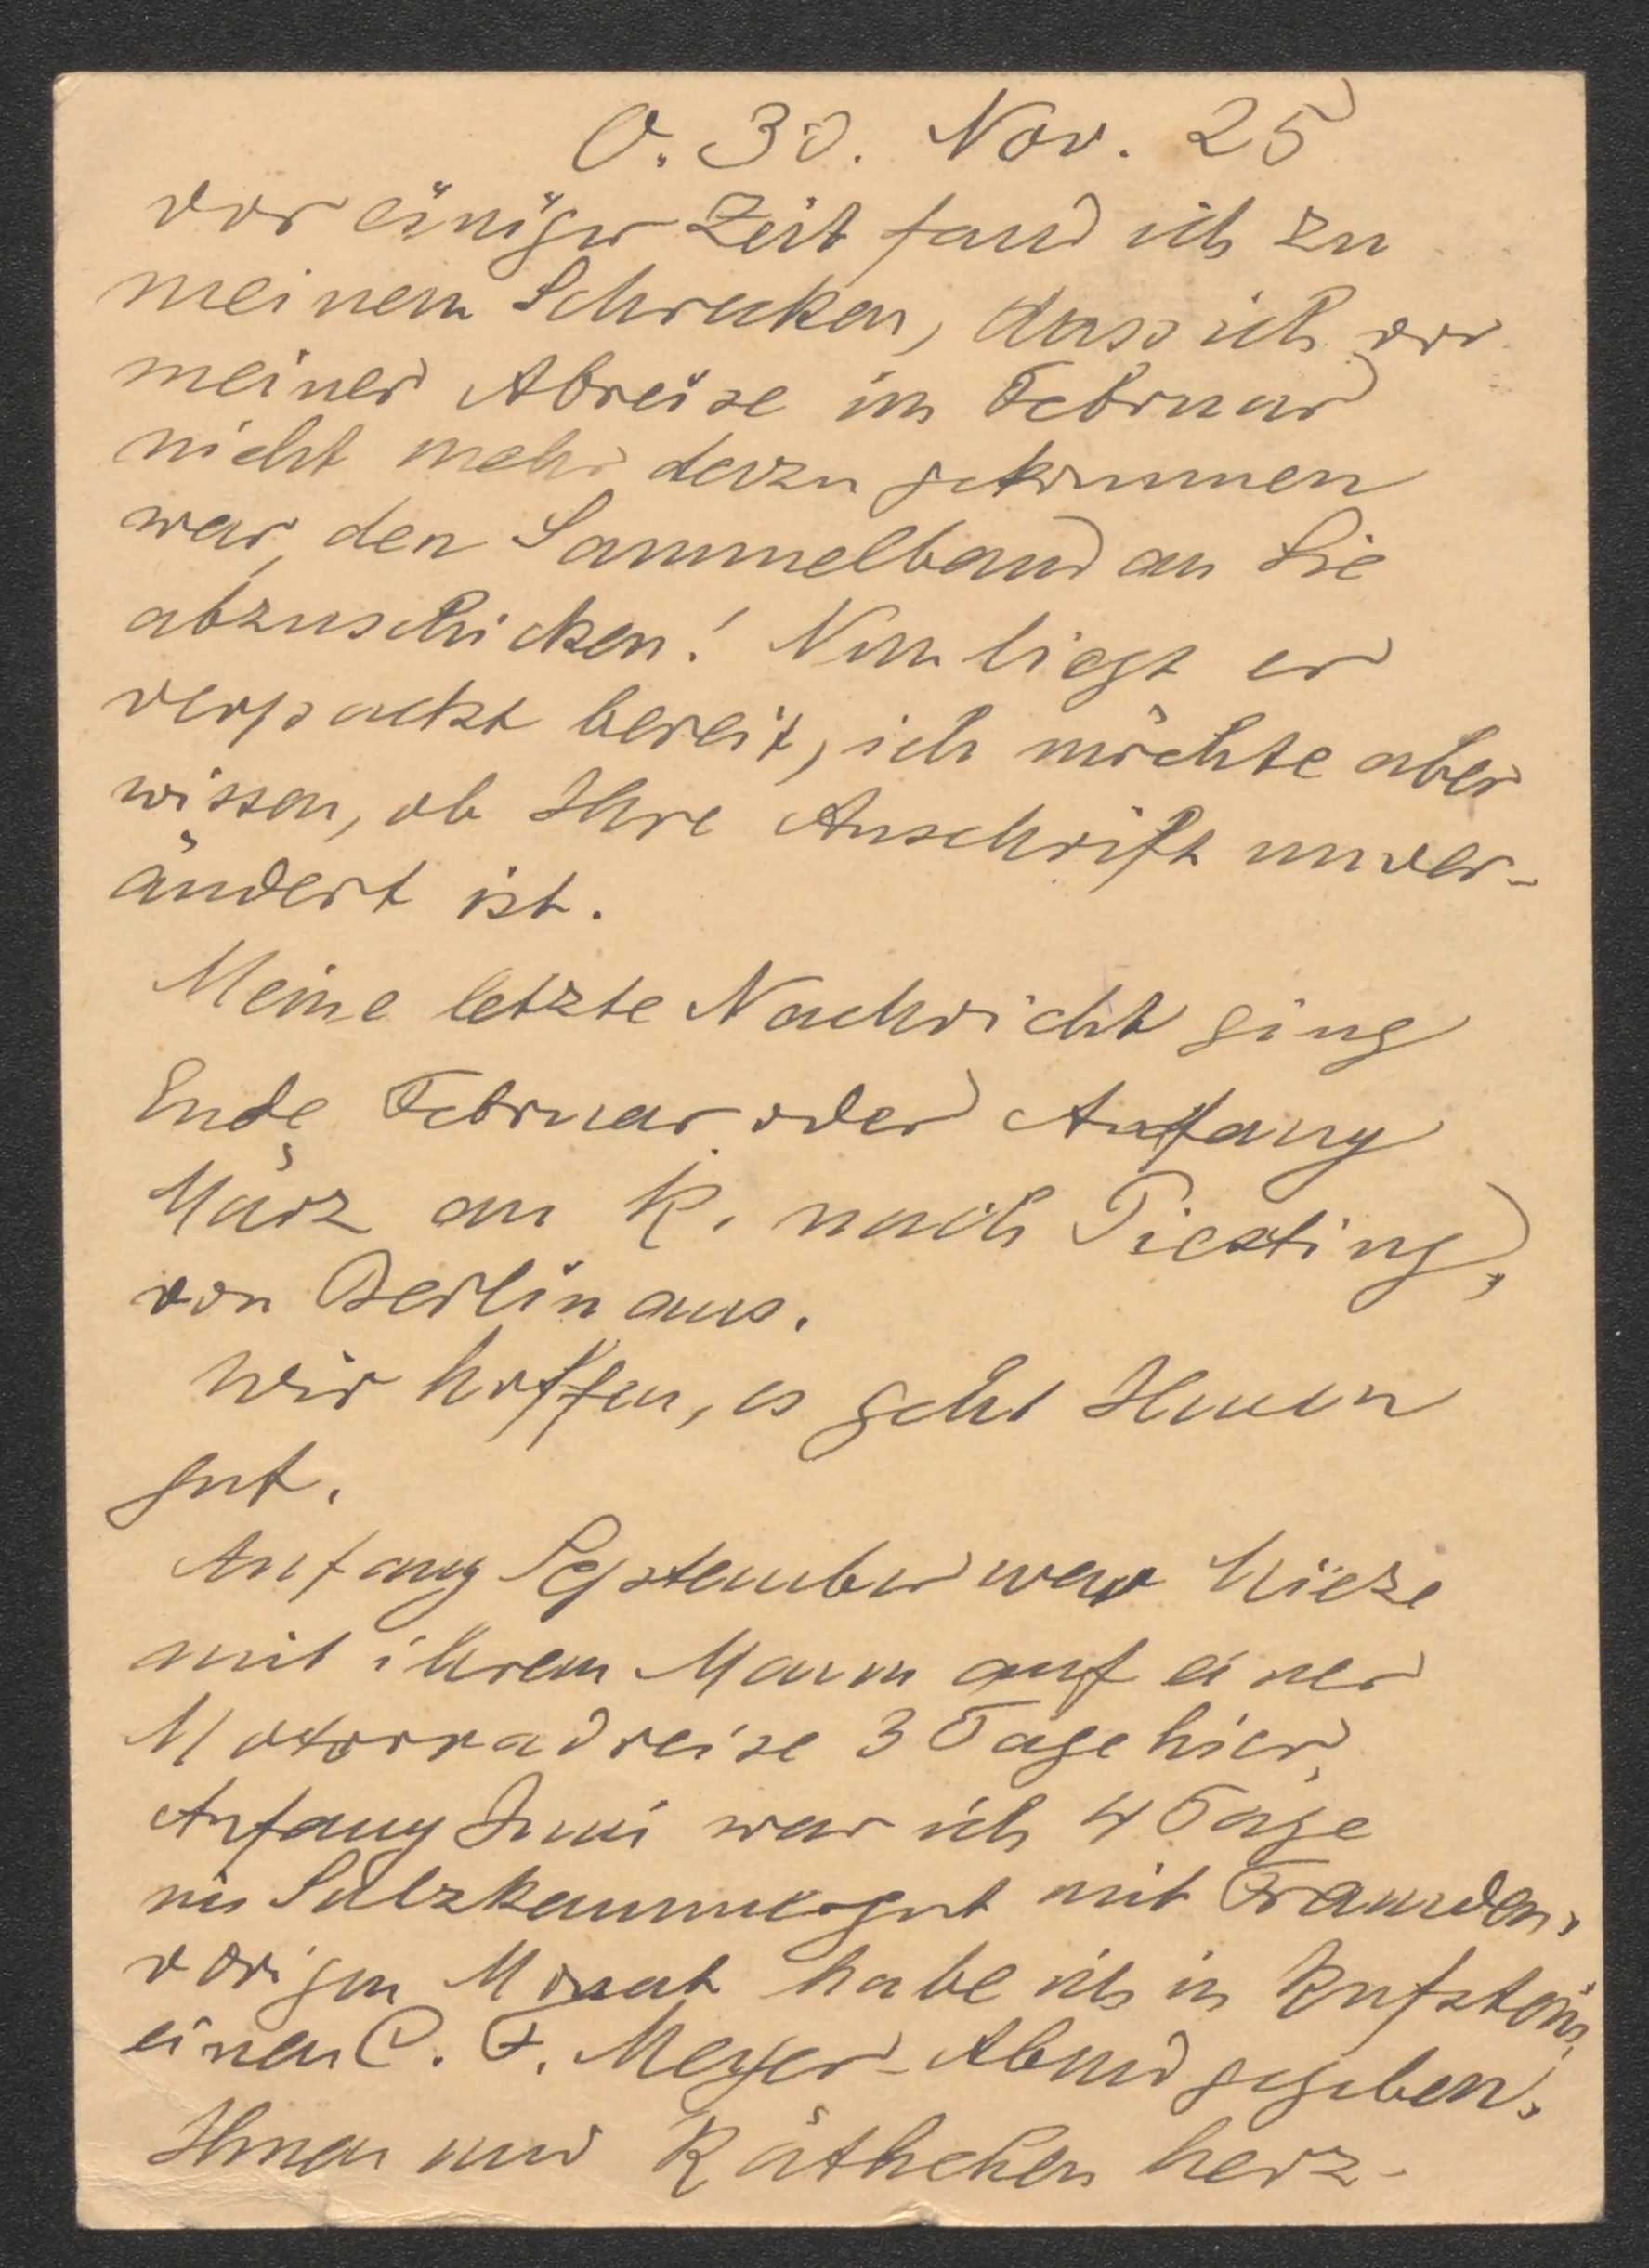 O. 30. Nov. 25
vor einiger Zeit fand ich zu
meinem Schrecken, dass ich vor
meiner Abreise im Februar
nicht mehr dazu gekommen
war, den Sammelband an Sie
abzuschicken! Nun liegt er
verpackt bereit, ich möchte aber
wissen, ob Ihre Anschrift unver-
ändert ist.
Meine letzte Nachricht ging
Ende Februar oder Anfang
März an K. nach Piesting,
von Berlin aus.
Wir hoffen, es geht Ihnen
gut.
Anfang September war
mit ihrem Mann auf einer
Motorradreise 3 Tage hier,
Anfang Juni war ich 4 Tage
im Salzkammergut mit
vorigen Monat habe ich in Kufstein
einen C. F. Meyer-Abend gegeben.
Ihnen und Käthchen herz-